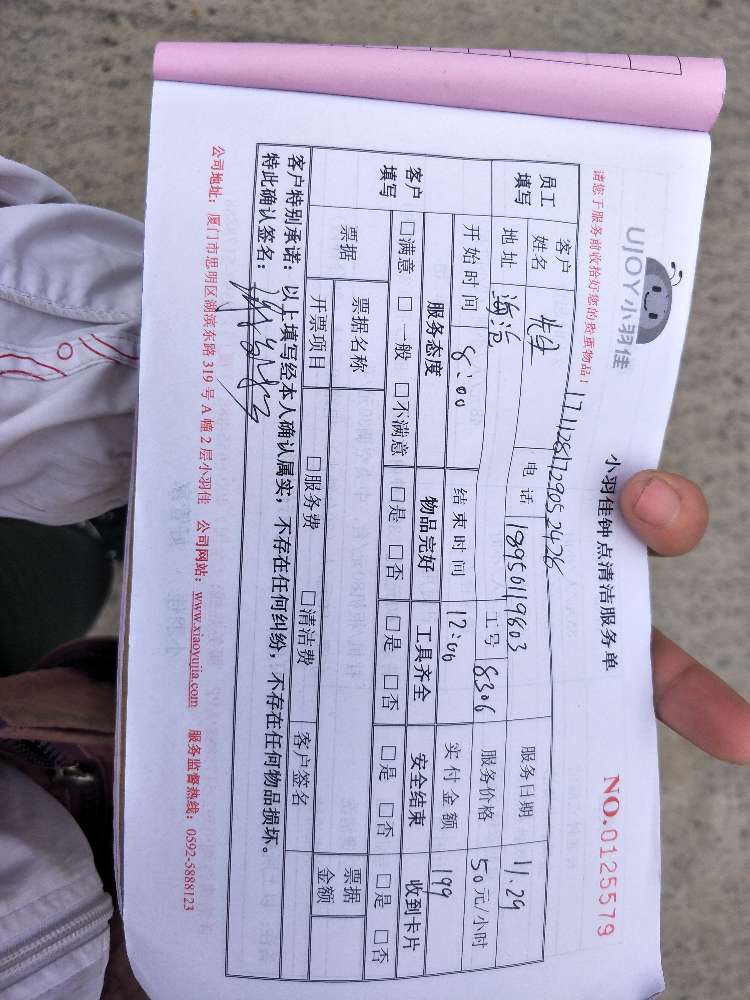 UJOY小羽佳
小羽佳钟点清洁服务单
NO.0125579
请您于服务前收拾好您的贵重物品！
171128172905 2426
员工填写
客户姓名 先生 电话 18950119803 服务日期 11.29
地址 海沧 工号 8306 服务价格 50元/小时
开始时间 8:00 结束时间 12:00 实付金额 199
客户填写
服务态度 物品完好 工具齐全 安全结束 收到卡片
□满意 □一般 □不满意 □是 □否 □是 □否 □是 □否 □是 □否
票据 票据名称 票据金额
开票项目 □服务费 □清洁费 客户签名
客户特别承诺：以上填写经本人确认属实，不存在任何纠纷，不存在任何物品损坏。
特此确认签名：
公司地址：厦门市思明区湖滨东路319号A幢2层小羽佳 公司网站：www.xiaoyujia.com 服务监督热线：0592-5888123